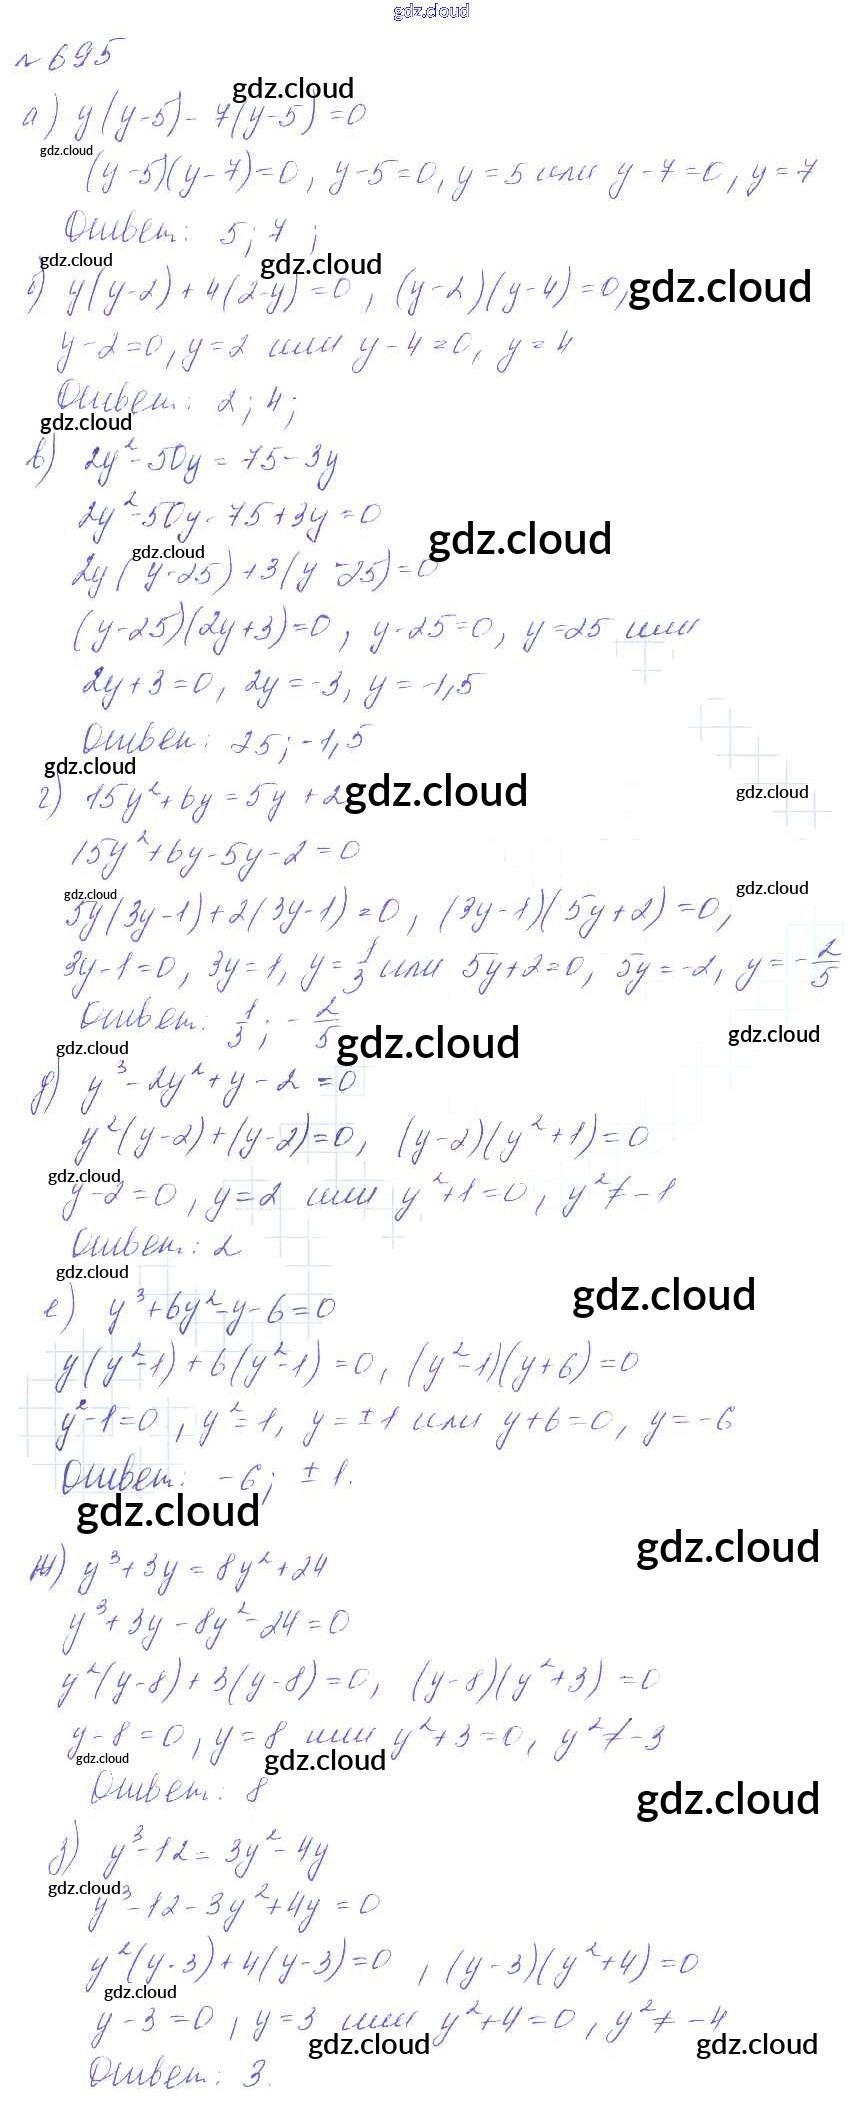 gdz.cloud
№ 695
gdz.cloud
а) y(y-5) - 7(y-5) = 0
gdz.cloud
(y-5)(y-7)=0, y-5=0, y=5 или y-7=0, y=7
Ответ: 5; 7;
gdz.cloud gdz.cloud gdz.cloud
б) y(y-2)+4(2-y)=0, (y-2)(y-4)=0,
y-2=0, y=2 или y-4=0, y=4
Ответ: 2; 4;
gdz.cloud
в) 2y²-50y=75-3y
2y²-50y-75+3y=0
gdz.cloud gdz.cloud
2y(y-25)+3(y-25)=0
(y-25)(2y+3)=0, y-25=0, y=25 или
2y+3=0, 2y=-3, y=-1,5
Ответ: 25; -1,5
gdz.cloud
г) 15y²+6y=5y+2
gdz.cloud gdz.cloud
15y²+6y-5y-2=0
gdz.cloud gdz.cloud
5y(3y-1)+2(3y-1)=0, (3y-1)(5y+2)=0,
3y-1=0, 3y=1, y=1/3 или 5y+2=0, 5y=-2, y=-2/5
Ответ: 1/3; -2/5
gdz.cloud gdz.cloud gdz.cloud
д) y³-2y²+y-2=0
y²(y-2)+(y-2)=0, (y-2)(y²+1)=0
gdz.cloud
y-2=0, y=2 или y²+1=0, y²≠-1
Ответ: 2
gdz.cloud gdz.cloud
е) y³+6y²-y-6=0
y(y²-1)+6(y²-1)=0, (y²-1)(y+6)=0
y²-1=0, y²=1, y=±1 или y+6=0, y=-6
Ответ: -6; ±1.
gdz.cloud gdz.cloud
ж) y³+3y=8y²+24
y³+3y-8y²-24=0
y²(y-8)+3(y-8)=0, (y-8)(y²+3)=0
y-8=0, y=8 или y²+3=0, y²≠-3
gdz.cloud gdz.cloud
Ответ: 8
gdz.cloud
з) y³-12=3y²-4y
gdz.cloud
y³-12-3y²+4y=0
y²(y-3)+4(y-3)=0, (y-3)(y²+4)=0
gdz.cloud
y-3=0, y=3 или y²+4=0, y²≠-4
gdz.cloud gdz.cloud
Ответ: 3.